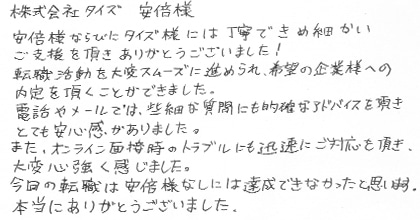 株式会社タイズ 安倍様
安倍様ならびにタイズ様には丁寧できめ細かい
ご支援を頂きありがとうございました!
転職活動を大変スムーズに進められ、希望の企業様への
内定を頂くことができました。
電話やメールでは、些細な質問にも的確なアドバイスを頂き
とても安心感がありました。
また、オンライン面接時のトラブルにも迅速にご対応を頂き、
大変心強く感じました。
今回の転職は安倍様なしには達成できなかったと思います。
本当にありがとうございました。